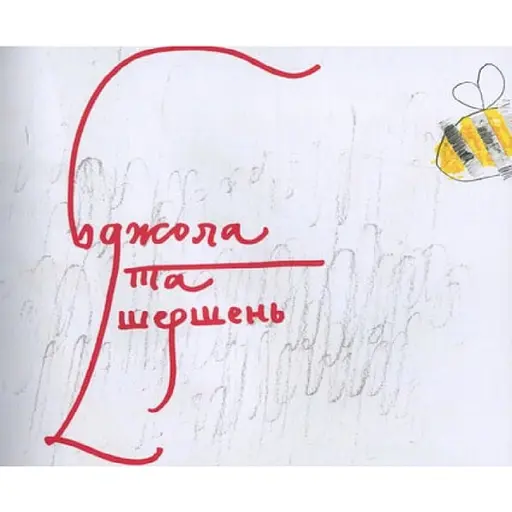 Бджола
та
шершень